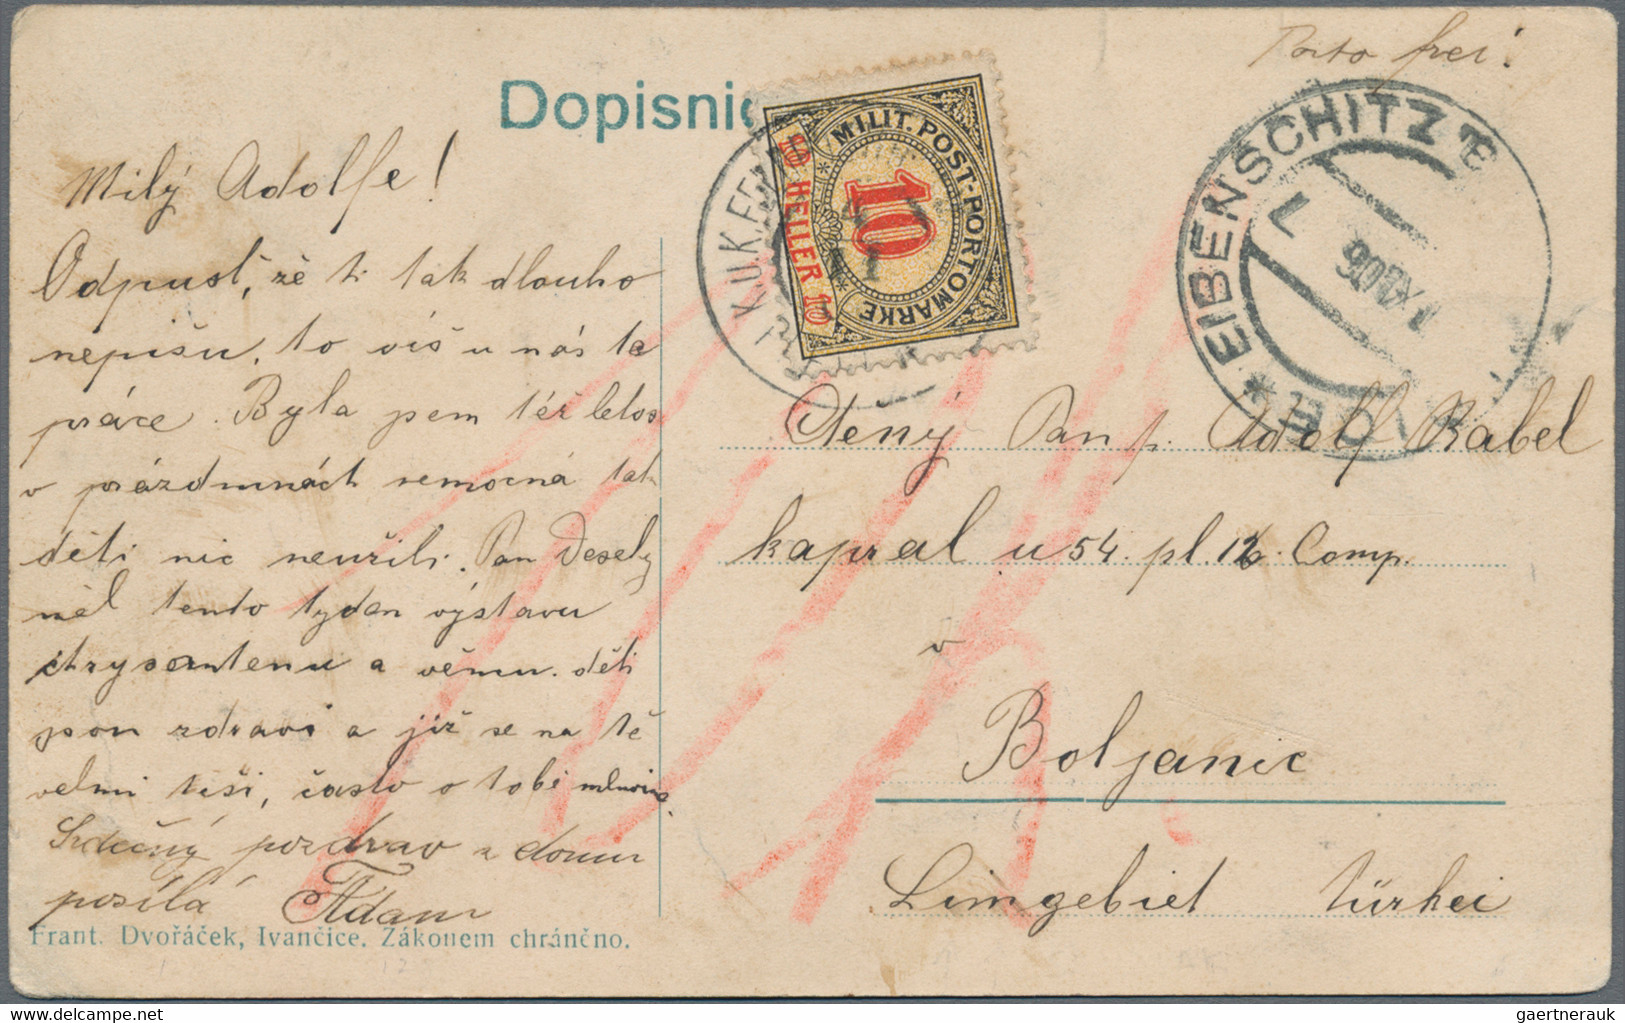 Porto frei!
Dopisnic
Milý Adolfe!
Odpusť, že ti tak dlouho
nepíšu, to víš u nás te
práce. Byla jsem též letos
v prázdninách nemocná tak
děti nic neužili. Pan Veselý
měl tento týden výstavu
chrysantenu a děti
jsou zdraví a již se na tě
velmi těší, často o tobě mluvíme.
Srdečný pozdrav z domu
posílá FAdam
Frant. Dvořáček, Ivančice. Zákonem chráněno.
K.U.K.
MILIT. POST-PORTOMARKE
10
10 HELLER 10
* EIBENSCHITZ
7 XI 06
Ctěný Pan p. Adolf Rabel
kaprál u 54. pl. 16. Comp.
v
Boljanic
Limgebiet Türkei
gaertnerauk